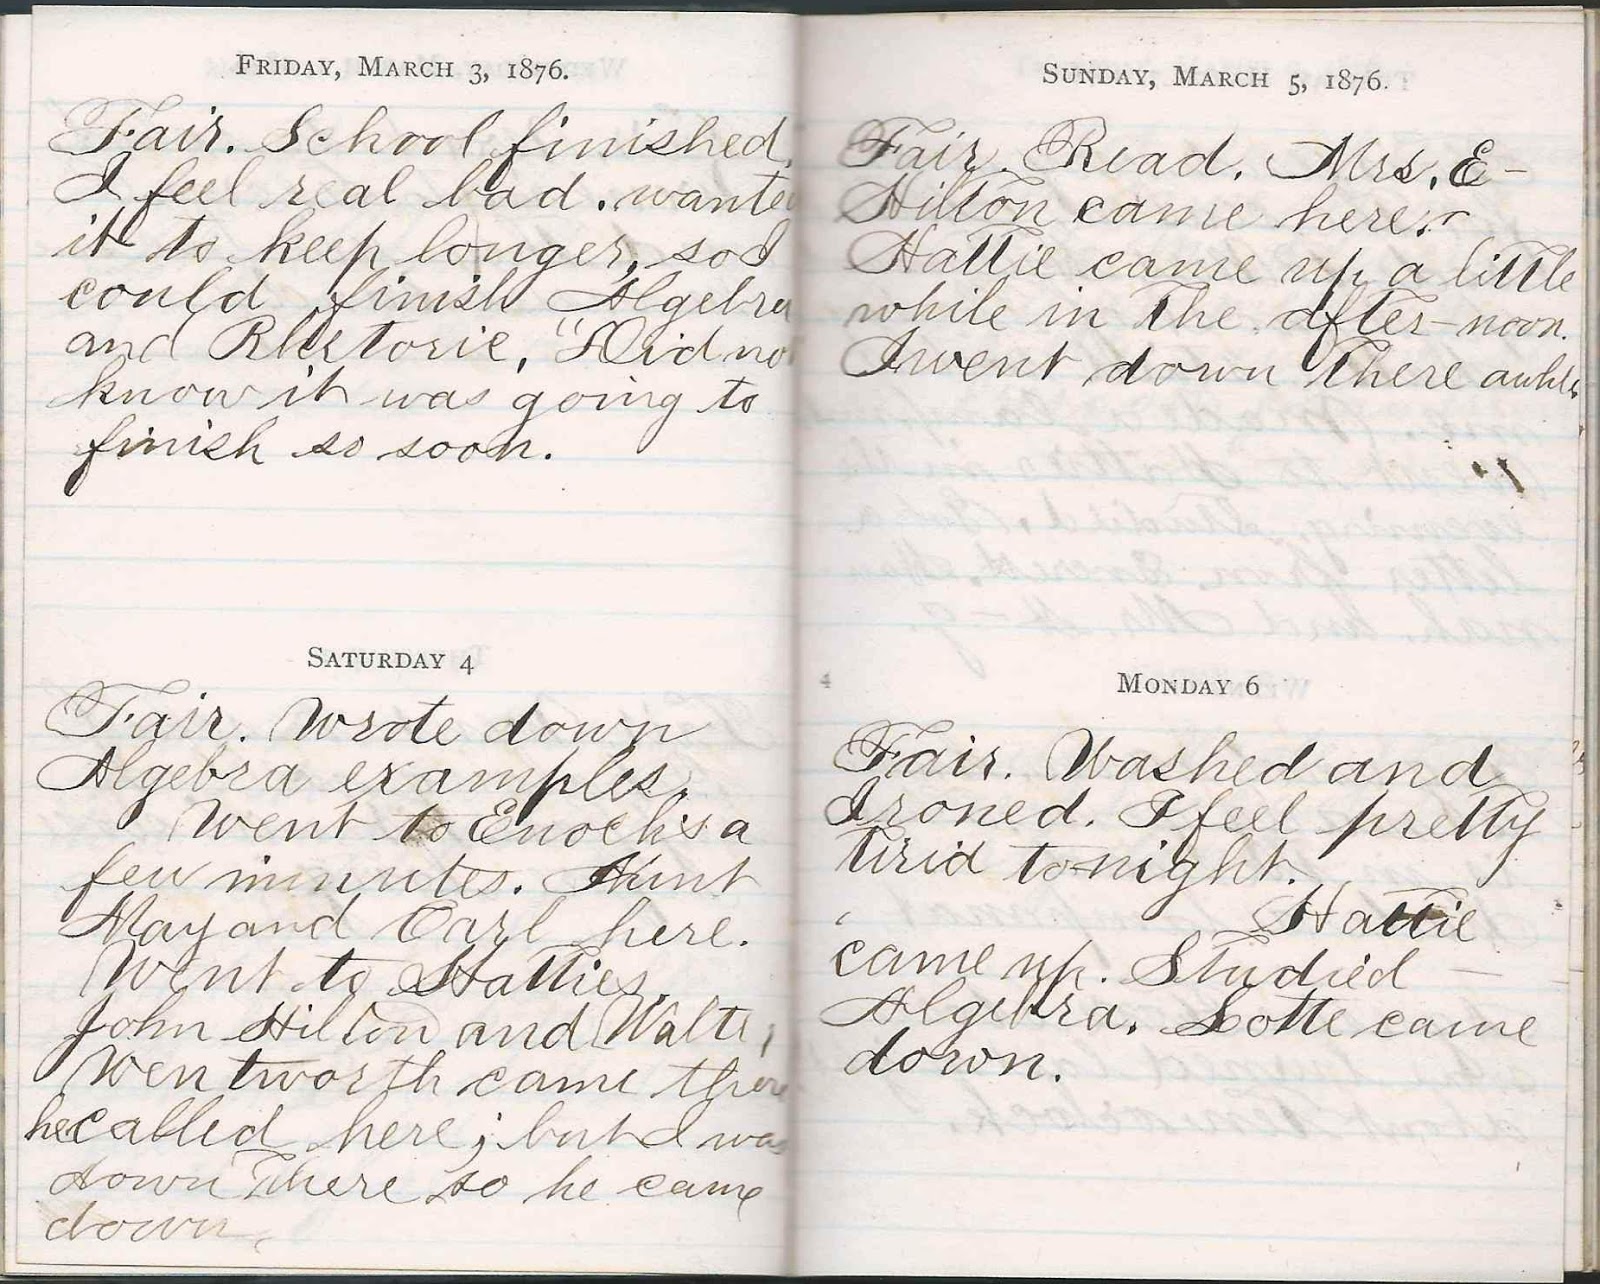 FRIDAY, MARCH 3, 1876.
Fair. School finished.
I feel real bad. wanted
it to keep longer, so I
could finish Algebra
and Rhetoric, "Did not
know it was going to
finish so soon.
SATURDAY 4
Fair. Wrote down
Algebra examples.
Went to Enoch's a
few minutes. Aunt
May and Carl here.
Went to Hatties.
John Hilton and Walter
Wentworth came there
he called here; but I was
down There so he came
down.
SUNDAY, MARCH 5, 1876.
Fair. Read. Mrs. E-
Hilton came here.
Hattie came up a little
while in The after-noon.
I went down There awhile
4
MONDAY 6
Fair. Washed and
Ironed. I feel pretty
tired to-night.
Hattie
came up. Studied -
Algebra. Lotte came
down.